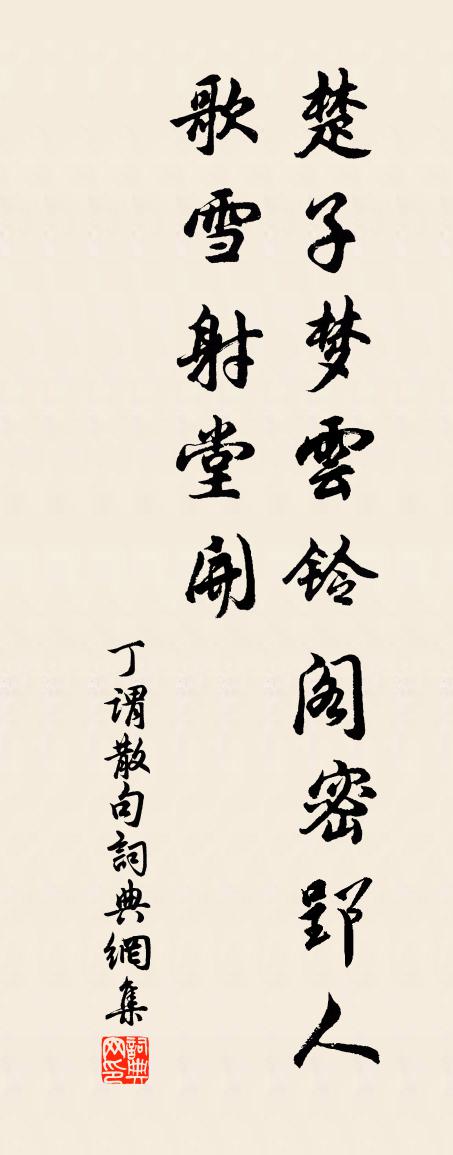 楚子梦雲鈴阁密郢人
歌雪射堂開
丁谓散句詞典網集
詞典网印